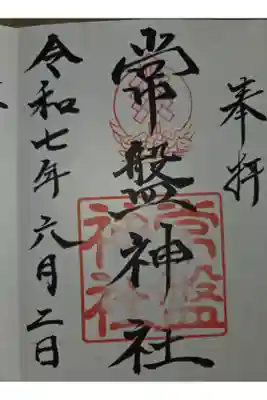 奉拝
常盤神社
常盤神社
令和七年六月二日